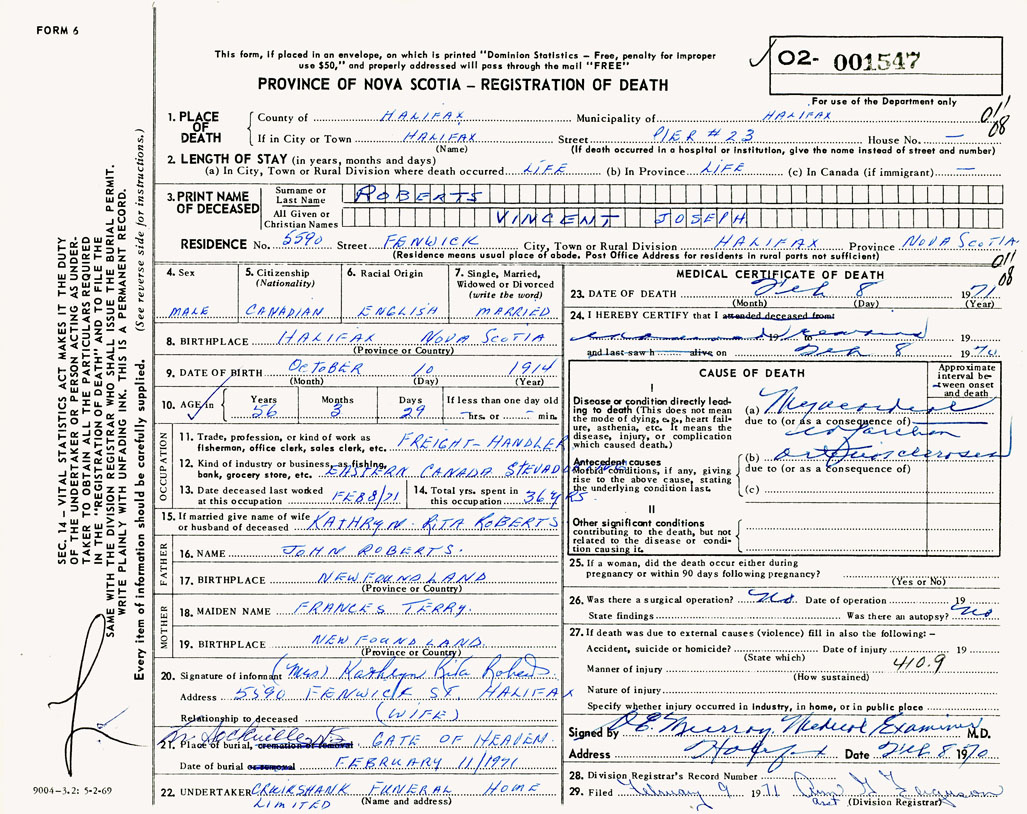 FORM 6
This form, if placed in an envelope, on which is printed "Dominion Statistics – Free, penalty for improper
use $50," and properly addressed will pass through the mail "FREE"
O2- 001547
PROVINCE OF NOVA SCOTIA – REGISTRATION OF DEATH
For use of the Department only
011
08
1. PLACE OF DEATH
County of HALIFAX Municipality of HALIFAX
If in City or Town HALIFAX Street PIER # 23 House No. —
(Name) (If death occurred in a hospital or institution, give the name instead of street and number)
2. LENGTH OF STAY (in years, months and days)
(a) In City, Town or Rural Division where death occurred LIFE (b) In Province LIFE (c) In Canada (if immigrant) —
3. PRINT NAME OF DECEASED
Surname or Last Name ROBERTS
All Given or Christian Names VINCENT JOSEPH
RESIDENCE No. 5590 Street FENWICK City, Town or Rural Division HALIFAX Province NOVA SCOTIA
(Residence means usual place of abode. Post Office Address for residents in rural parts not sufficient)
011
08
4. Sex
MALE
5. Citizenship (Nationality)
CANADIAN
6. Racial Origin
ENGLISH
7. Single, Married, Widowed or Divorced (write the word)
MARRIED
8. BIRTHPLACE HALIFAX NOVA SCOTIA
(Province or Country)
9. DATE OF BIRTH OCTOBER 10 1914
(Month) (Day) (Year)
10. AGE in Years 56 Months 3 Days 29 If less than one day old
— hrs. or — min.
OCCUPATION
11. Trade, profession, or kind of work as
fisherman, office clerk, sales clerk, etc. FREIGHT-HANDLER
12. Kind of industry or business, as fishing,
bank, grocery store, etc. EASTERN CANADA STEVADORING
13. Date deceased last worked
at this occupation FEB 8/71
14. Total yrs. spent in
this occupation 36 YRS
15. If married give name of wife
or husband of deceased KATHRYN RITA ROBERTS
FATHER
16. NAME JOHN ROBERTS.
17. BIRTHPLACE NEWFOUNDLAND
(Province or Country)
MOTHER
18. MAIDEN NAME FRANCES TERRY.
19. BIRTHPLACE NEWFOUNDLAND.
(Province or Country)
20. Signature of informant (Mrs) Kathryn Rita Roberts.
Address 5590 FENWICK ST HALIFAX
Relationship to deceased (WIFE)
21. Place of burial, cremation or removal GATE OF HEAVEN.
Date of burial or removal FEBRUARY 11/1971
22. UNDERTAKER CRUIKSHANK FUNERAL HOME
LIMITED (Name and address)
MEDICAL CERTIFICATE OF DEATH
23. DATE OF DEATH Feb 8 1971
(Month) (Day) (Year)
24. I HEREBY CERTIFY that I attended deceased from
19 to 19
and last saw h alive on Feb 8 1970
CAUSE OF DEATH
Approximate interval between onset and death
I
Disease or condition directly leading to death (This does not mean
the mode of dying, e.g., heart failure, asthenia, etc. It means the
disease, injury, or complication
which caused death.)
(a) Myocardial
due to (or as a consequence of)
infarction
Antecedent causes
Morbid conditions, if any, giving
rise to the above cause, stating
the underlying condition last.
(b) arteriosclerosis
due to (or as a consequence of)
(c)
II
Other significant conditions
contributing to the death, but not
related to the disease or condition causing it.
25. If a woman, did the death occur either during
pregnancy or within 90 days following pregnancy?
(Yes or No)
26. Was there a surgical operation? No Date of operation 19
State findings Was there an autopsy? No
27. If death was due to external causes (violence) fill in also the following: –
Accident, suicide or homicide? Date of injury 19
(State which)
410.9
Manner of injury
(How sustained)
Nature of injury
Specify whether injury occurred in industry, in home, or in public place
Signed by D.E. Murray, Medical Examiner M.D.
Address Halifax Date Feb 8 1970
28. Division Registrar's Record Number
29. Filed February 9 1971 Ann G Ferguson
asst (Division Registrar)
SEC. 14 – VITAL STATISTICS ACT MAKES IT THE DUTY
OF THE UNDERTAKER OR PERSON ACTING AS UNDERTAKER TO OBTAIN ALL THE PARTICULARS REQUIRED
IN THE "REGISTRATION OF DEATH" AND TO FILE THE
SAME WITH THE DIVISION REGISTRAR WHO SHALL ISSUE THE BURIAL PERMIT.
WRITE PLAINLY WITH UNFADING INK. THIS IS A PERMANENT RECORD.
Every item of information should be carefully supplied. (See reverse side for instructions.)
9004-3.2: 5-2-69